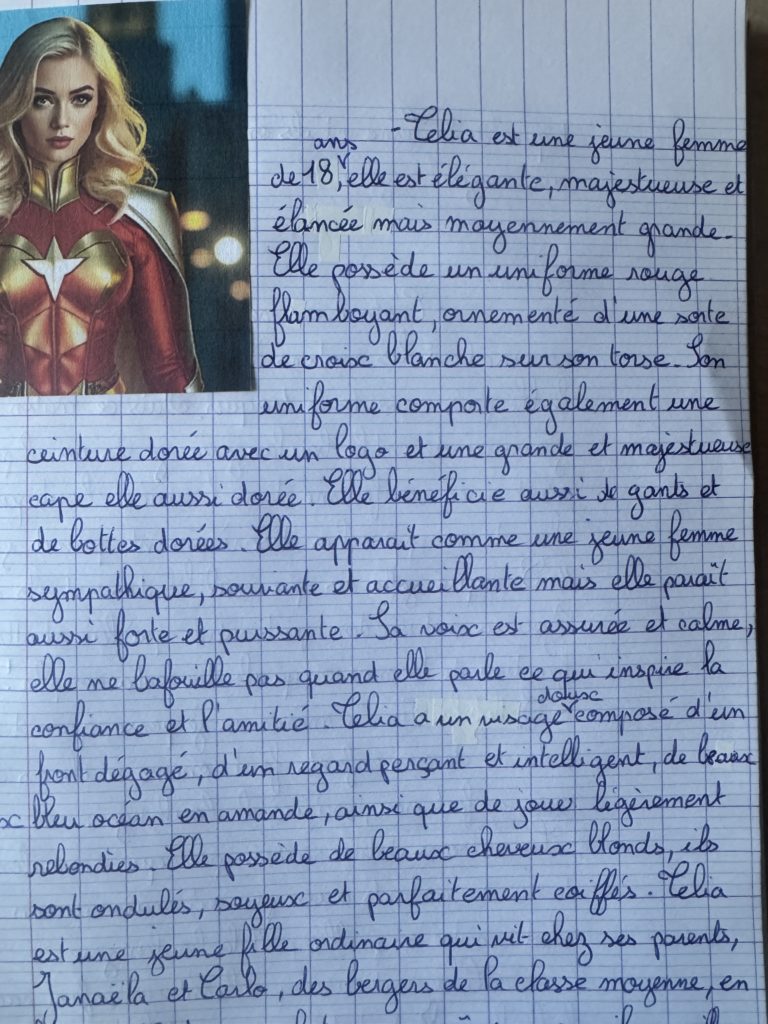 - Celia est une jeune femme
de 18 ans, elle est élégante, majestueuse et
élancée mais moyennement grande.
Elle possède un uniforme rouge
flamboyant, ornementé d'une sorte
de croix blanche sur son torse. Son
uniforme comporte également une
ceinture dorée avec un logo et une grande et majestueuse
cape elle aussi dorée. Elle bénéficie aussi de gants et
de bottes dorées. Elle apparait comme une jeune femme
sympathique, souriante et accueillante mais elle paraît
aussi forte et puissante. Sa voix est assurée et calme,
elle ne bafouille pas quand elle parle ce qui inspire la
confiance et l'amitié. Celia a un visage doux composé d'un
front dégagé, d'un regard perçant et intelligent, de beaux
bleu océan en amande, ainsi que de joue légèrement
rebondies. Elle possède de beaux cheveux blonds, ils
sont ondulés, soyeux et parfaitement coiffés. Celia
est une jeune fille ordinaire qui vit chez ses parents,
Janaëla et Carlo, des bergers de la classe moyenne, en